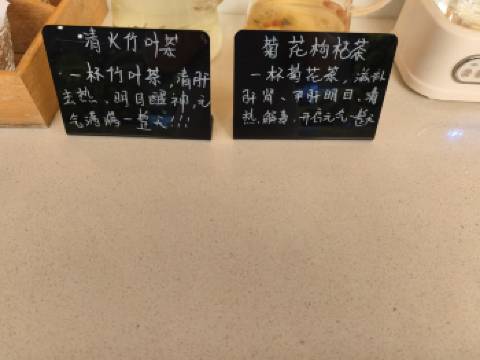 清火竹叶茶
一杯竹叶茶，清肝
去热、明目醒神，元
气满满一整天!!!
菊花枸杞茶
一杯菊花茶，滋补
肝肾、平肝明目、清
热解毒，开启元气一整天